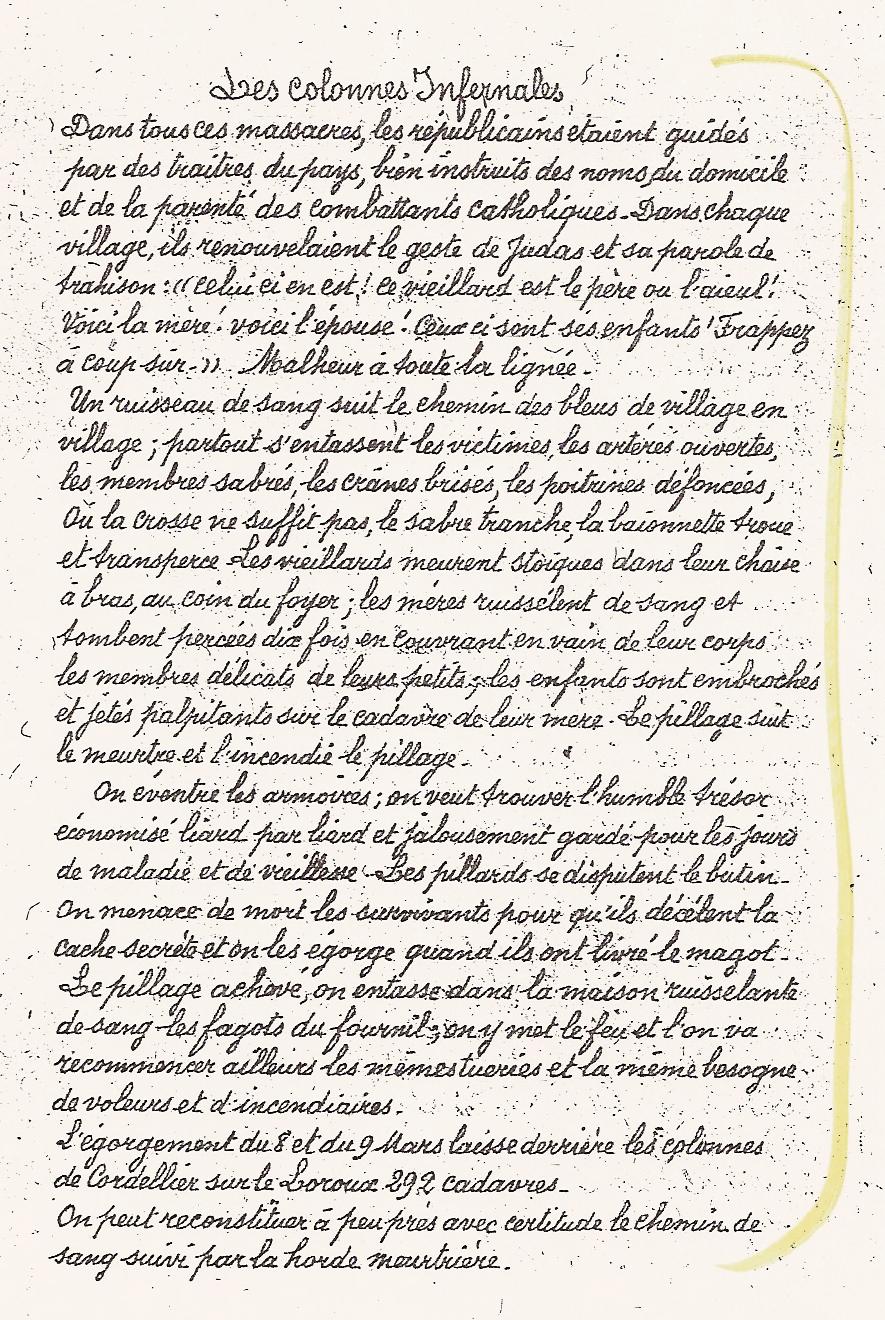 Les colonnes Infernales
Dans tous ces massacres, les républicains étaient guidés
par des traitres du pays, bien instruits des noms, du domicile
et de la parenté des combattants catholiques. Dans chaque
village, ils renouvelaient le geste de Judas et sa parole de
trahison : « celui ci en est ! ce vieillard est le père ou l'aieul !
Voici la mère ! voici l'épouse ! Ceux ci sont ses enfants ! Frappez
à coup sûr. » Malheur à toute la lignée.
Un ruisseau de sang suit le chemin des bleus de village en
village ; partout s'entassent les victimes, les artères ouvertes,
les membres sabrés, les crânes brisés, les poitrines défoncées,
Où la crosse ne suffit pas, le sabre tranche, la baionnette troue
et transperce. Les vieillards meurent stoïques dans leur chaise
à bras, au coin du foyer ; les mères ruissèlent de sang et
tombent percées dix fois en couvrant en vain de leur corps
les membres délicats de leurs petits ; les enfants sont embrochés
et jetés palpitants sur le cadavre de leur mère. Le pillage suit
le meurtre et l'incendie le pillage.
On éventre les armoires ; on veut trouver l'humble trésor
économisé liard par liard et jalousement gardé pour les jours
de maladie et de vieillesse. Les pillards se disputent le butin.
On menace de mort les survivants pour qu'ils décèlent la
cache secrète et on les égorge quand ils ont livré le magot.
Le pillage achevé, on entasse dans la maison ruisselante
de sang les fagots du fournil ; on y met le feu et l'on va
recommencer ailleurs les mêmes tueries et la même besogne
de voleurs et d'incendiaires.
L'égorgement du 8 et du 9 Mars laisse derrière les colonnes
de Cordellier sur le Loroux 292 cadavres.
On peut reconstituer à peu près avec certitude le chemin de
sang suivi par la horde meurtrière.